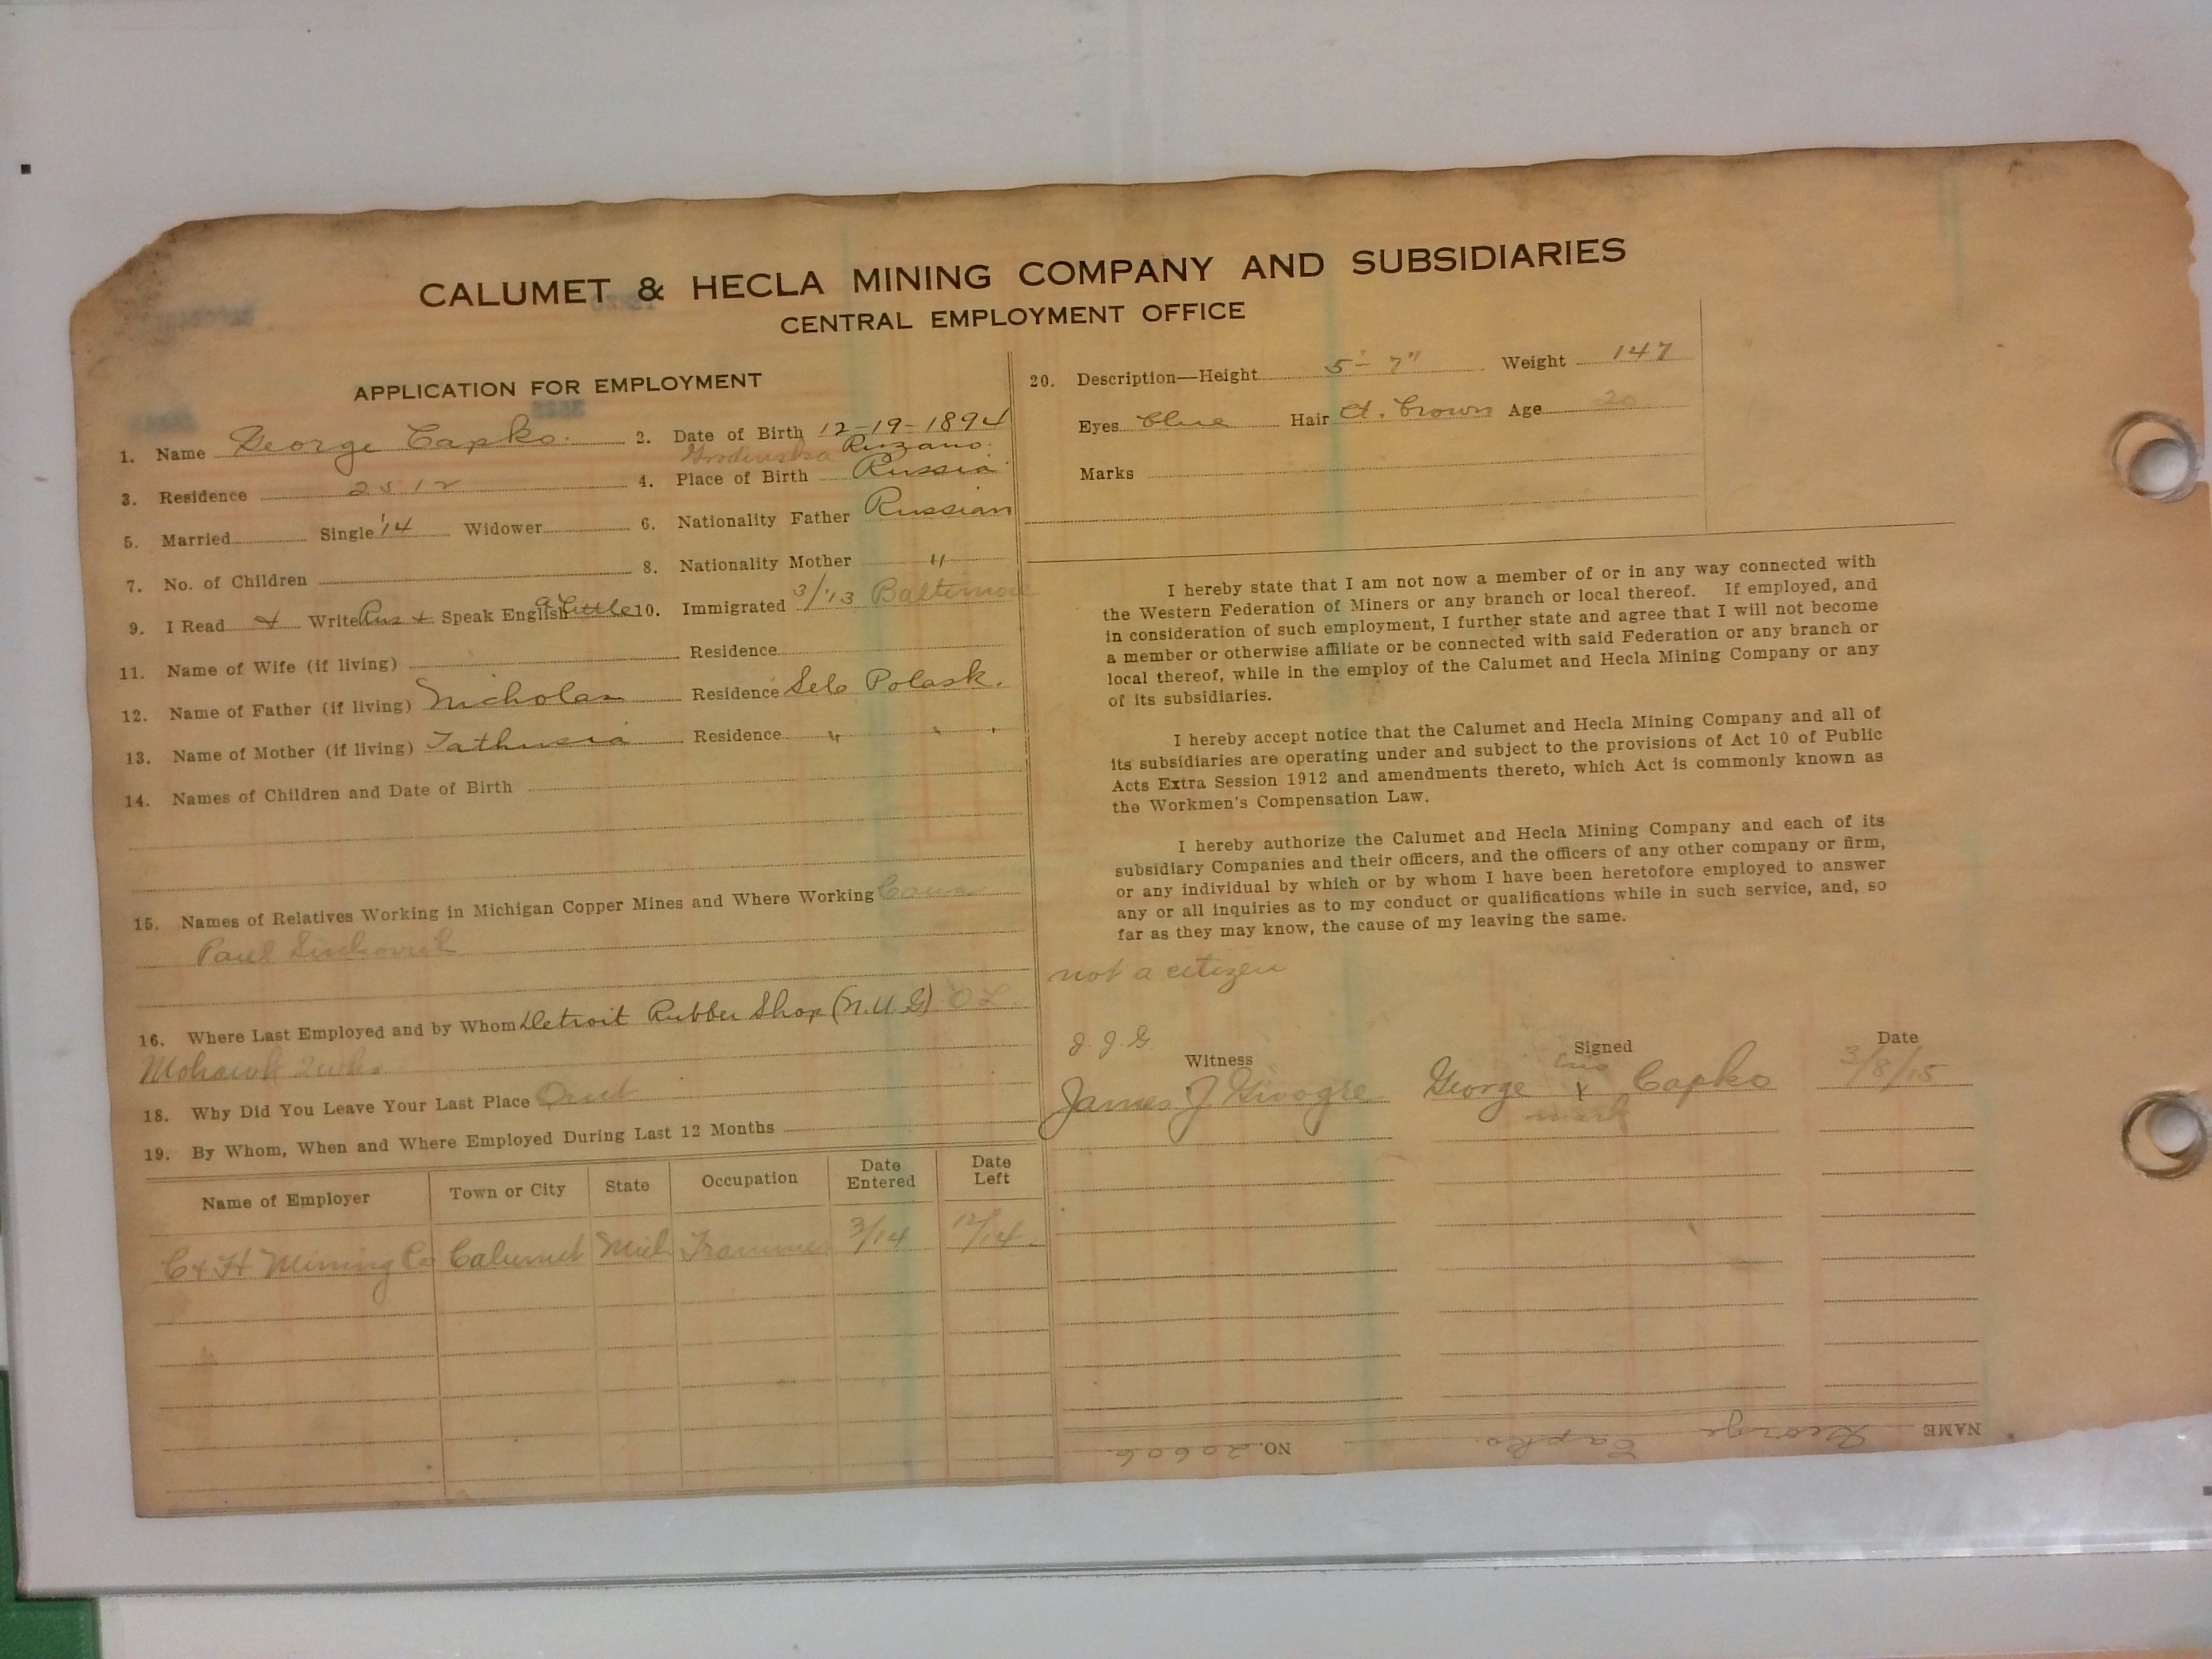 CALUMET & HECLA MINING COMPANY AND SUBSIDIARIES
CENTRAL EMPLOYMENT OFFICE
APPLICATION FOR EMPLOYMENT
1. Name George Capko. 2. Date of Birth 12-19-1894
Grodinska Ruzano.
3. Residence 2512 4. Place of Birth Russia
5. Married Single '14 Widower 6. Nationality Father Russian
7. No. of Children 8. Nationality Mother "
9. I Read & Write Rus + Speak English a little 10. Immigrated 3/'13 Baltimore
11. Name of Wife (if living) Residence
12. Name of Father (if living) Nicholas Residence Selo Polask.
13. Name of Mother (if living) Residence " " "
14. Names of Children and Date of Birth
15. Names of Relatives Working in Michigan Copper Mines and Where Working
Paul
16. Where Last Employed and by Whom Detroit Rubber Shop (N.U.G) O L
Mohawk
18. Why Did You Leave Your Last Place Quit
19. By Whom, When and Where Employed During Last 12 Months
Name of Employer Town or City State Occupation Date Entered Date Left
C & H Mining Co Calumet Mich Trammer 3/14 12/14
20. Description—Height 5'-7" Weight 147
Eyes blue Hair Lt. brown Age 20
Marks
I hereby state that I am not now a member of or in any way connected with
the Western Federation of Miners or any branch or local thereof. If employed, and
in consideration of such employment, I further state and agree that I will not become
a member or otherwise affiliate or be connected with said Federation or any branch or
local thereof, while in the employ of the Calumet and Hecla Mining Company or any
of its subsidiaries.
I hereby accept notice that the Calumet and Hecla Mining Company and all of
its subsidiaries are operating under and subject to the provisions of Act 10 of Public
Acts Extra Session 1912 and amendments thereto, which Act is commonly known as
the Workmen's Compensation Law.
I hereby authorize the Calumet and Hecla Mining Company and each of its
subsidiary Companies and their officers, and the officers of any other company or firm,
or any individual by which or by whom I have been heretofore employed to answer
any or all inquiries as to my conduct or qualifications while in such service, and, so
far as they may know, the cause of my leaving the same.
not a citizen
J.J.G.
Witness Signed Date
his
James J. George x Capko 3/8/15
mark
NAME George Capko. NO. 20606